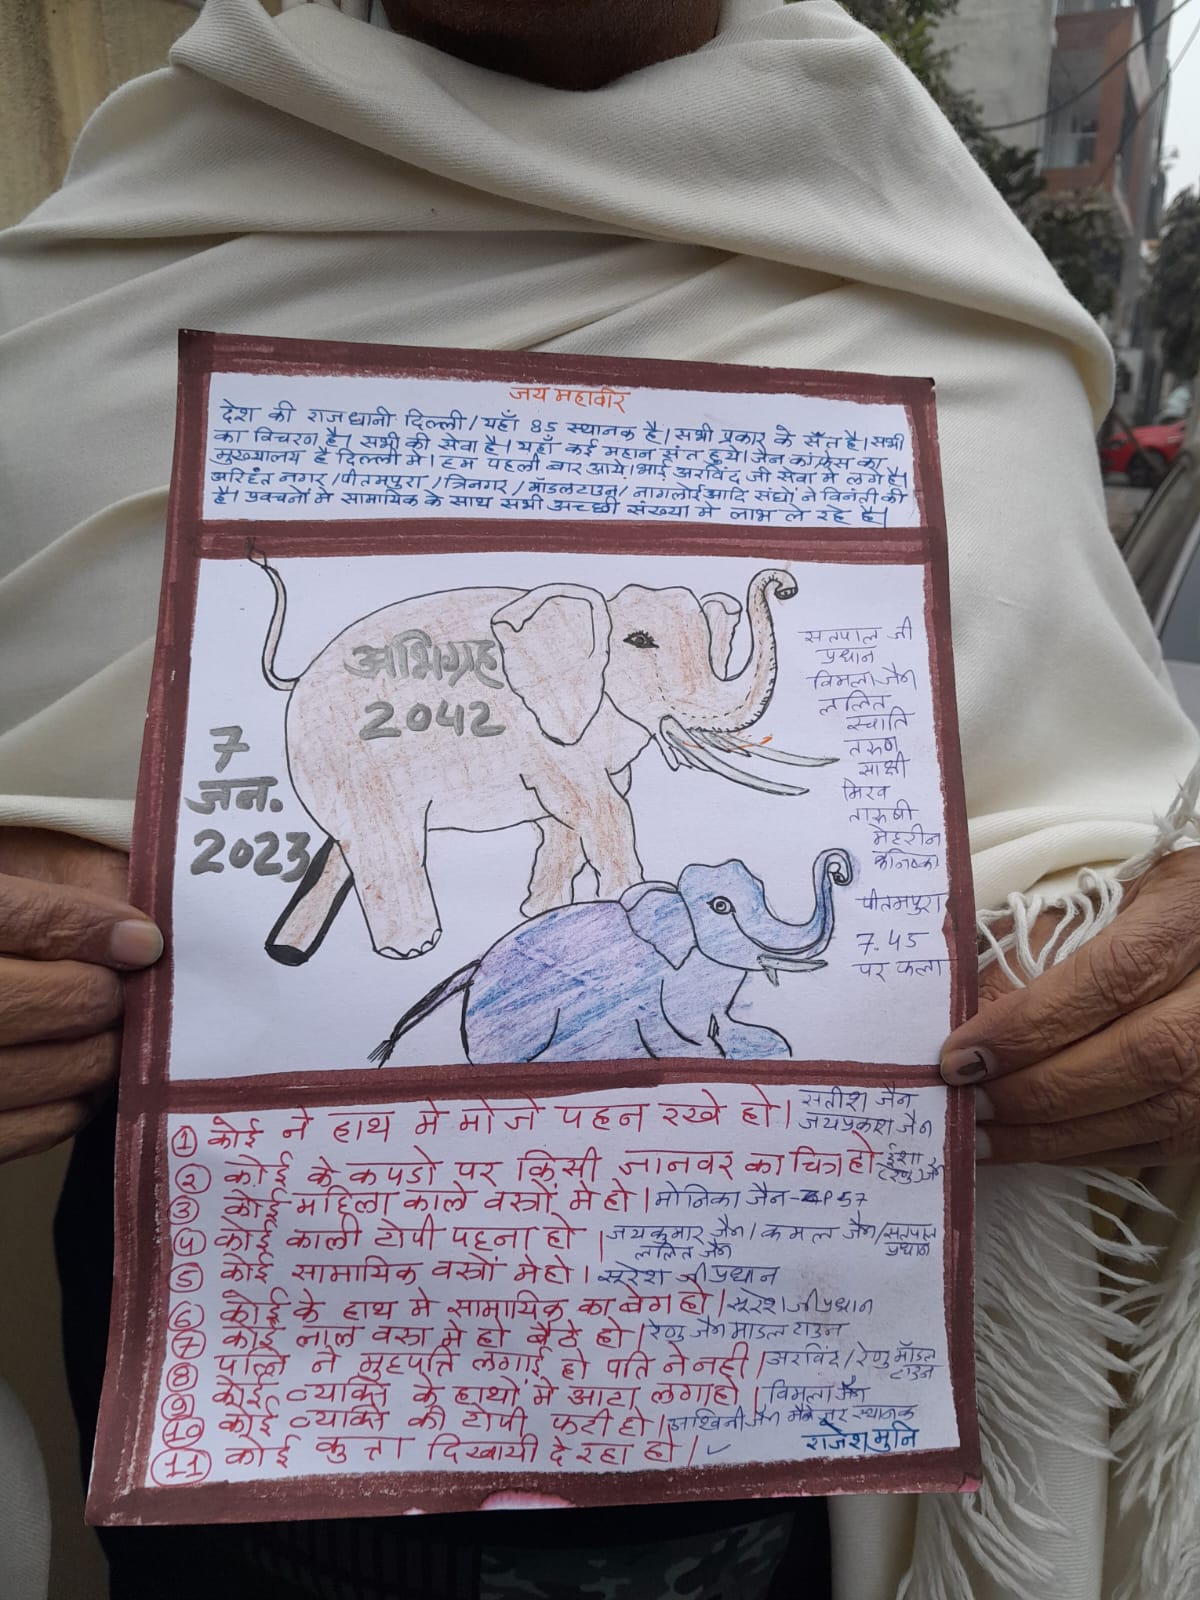 जय महावीर
देश की राजधानी दिल्ली/यहाँ 85 स्थानक है। सभी प्रकार के संत है। सभी
का विचरन है। सभी की सेवा है। यहाँ कई महान संत हुये। जैन कांफ्रेस का
मुख्यालय है दिल्ली मे। हम पहली बार आये। भाई अरविंद जी सेवा मे लगे है।
अरिहंत नगर/पीतमपुरा/त्रिनगर/मॉडल टाउन/नागलोई आदि संघो ने विनंती की
है। प्रवचनों मे सामायिक के साथ सभी अच्छी संख्या मे लाभ ले रहे है।
अभिग्रह
2042
7
जन.
2023
सतपाल जी
प्रधान
विमला जैन
ललित
स्वाति
तरुण
साक्षी
मिरव
तारुषी
मेहरीन
कनिष्का
पीतमपुरा
7.45
पर फला
① कोई ने हाथ मे मोजे पहन रखे हो। सतीश जैन
जयप्रकाश जैन
② कोई के कपडो पर किसी जानवर का चित्र हो ईशा
रेणु जैन
③ कोई महिला काले वस्त्रों मे हो। मोनिका जैन-AP 57
④ कोई काली टोपी पहना हो। जयकुमार जैन/कमल जैन/सतपाल प्रधान
ललित जैन
⑤ कोई सामायिक वस्त्रों मे हो। सुरेश जी प्रधान
⑥ कोई के हाथ मे सामायिक का बेग हो। सुरेश जी प्रधान
⑦ कोई लाल वस्त्र मे हो बैठे हो। रेणु जैन माडल टाउन
⑧ पत्नि ने मुहपति लगाई हो पति ने नही। अरविंद/रेणु मॉडल टाउन
⑨ कोई व्यक्ति के हाथों मे आटा लगा हो। विमला जैन
⑩ कोई व्यक्ति की टोपी फटी हो। अश्विनी जैन मैनेजर स्थानक
⑪ कोई कुत्ता दिखायी दे रहा हो। ✓
राजेश मुनि